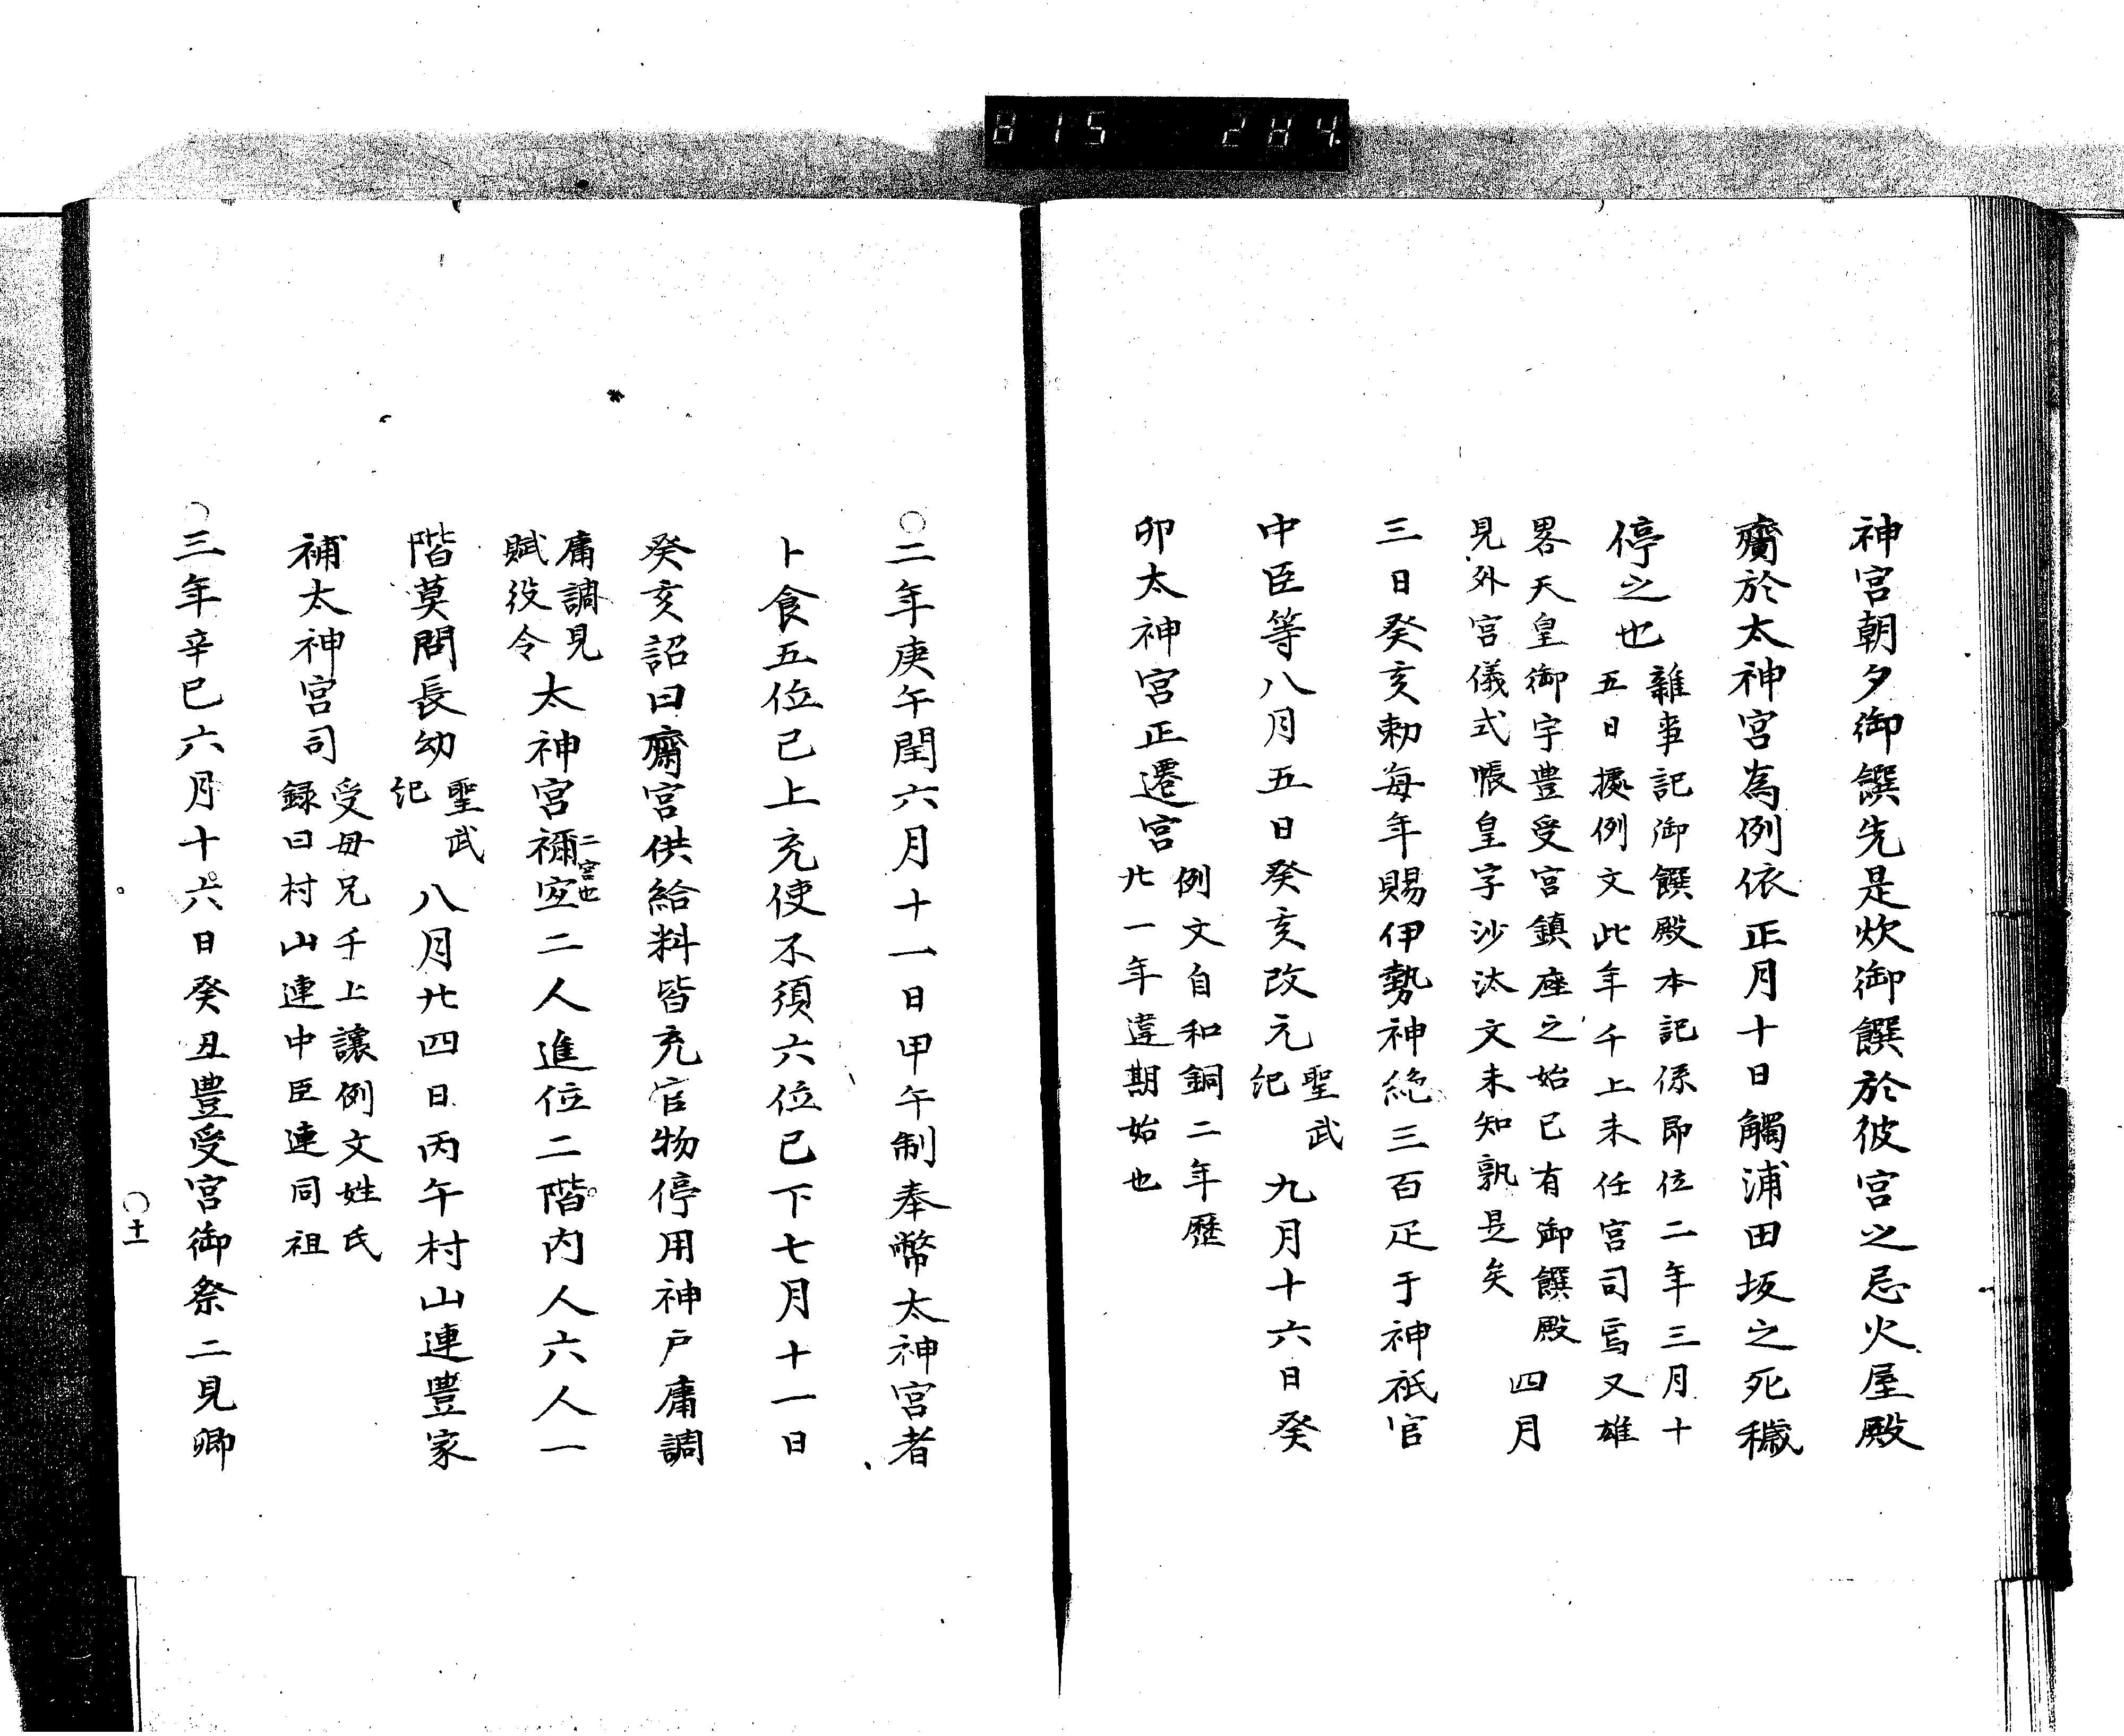 815 284
神宮朝夕御饌先是炊御饌於彼宮之忌火屋殿
齎於太神宮為例依正月十日觸浦田坂之死穢
停之也
雜事記御饌殿本記係即位二年三月十
五日據例文此年千上未任宮司焉又雄
畧天皇御宇豊受宮鎮座之始已有御饌殿
見外宮儀式帳皇字沙汰文未知孰是矣
四月
三日癸亥勅每年賜伊勢神絁三百疋于神祇官
中臣等八月五日癸亥改元
聖武
紀
九月十六日癸
卯太神宮正遷宮
例文自和銅二年歷
廿一年違期始也
〇二年庚午閏六月十一日甲午制奉幣太神宮者
卜食五位已上充使不須六位已下七月十一日
癸亥詔曰齋宮供給料皆充官物停用神戸庸調
庸調見
賦役令
太神宮禰宜二人進位二階内人六人一
二宮也
階莫問長幼
聖武
紀
八月廿四日丙午村山連豊家
補太神宮司
受母兄千上讓例文姓氏
録曰村山連中臣連同祖
〇三年辛巳六月十六日癸丑豊受宮御祭二見卿
〇十一